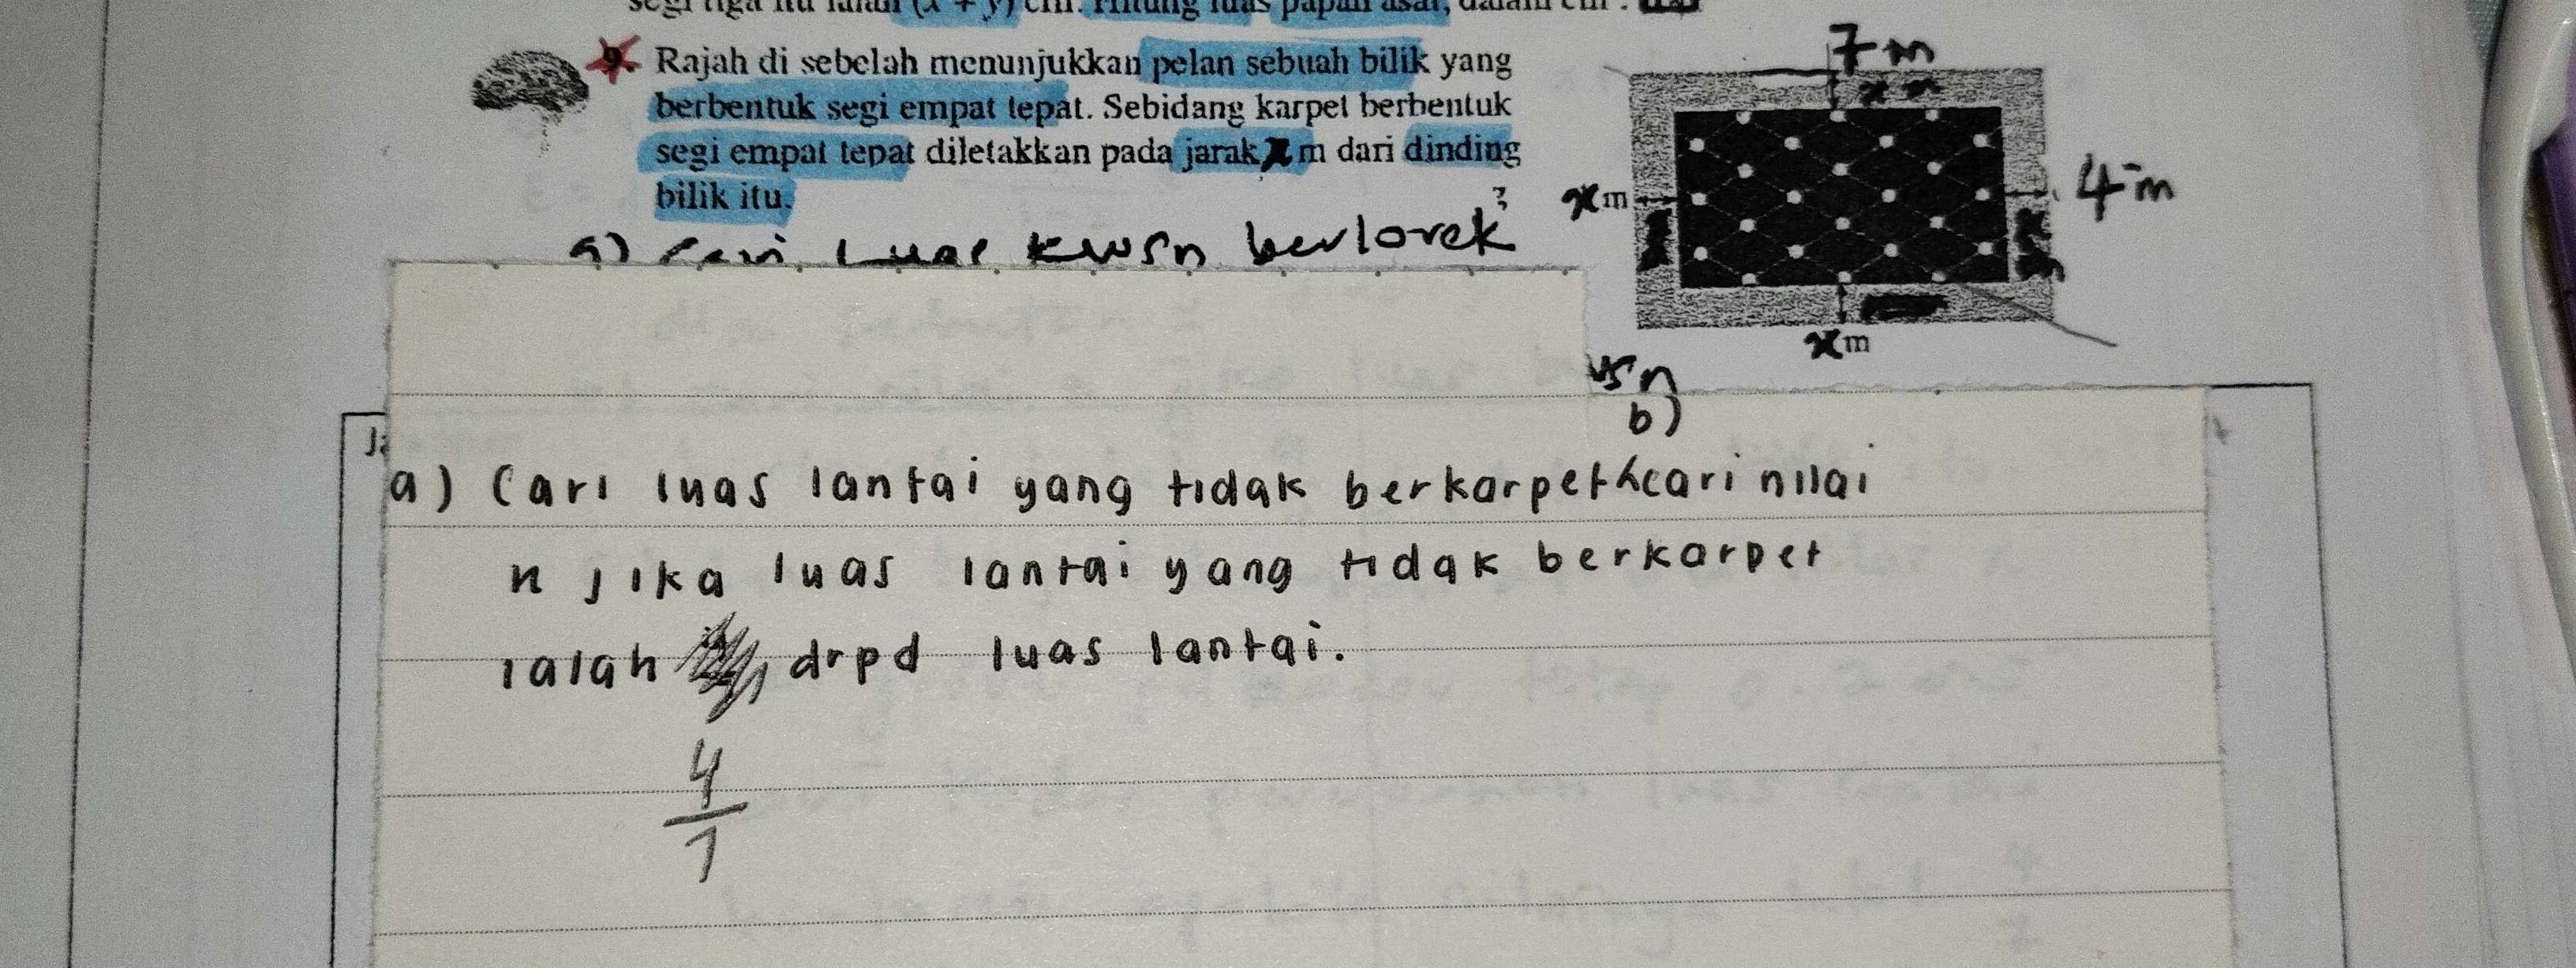 segi tiga itu ialah (x + y) cm. Hitung luas papan asal, dalam cm
7 m
9. Rajah di sebelah menunjukkan pelan sebuah bilik yang
berbentuk segi empat tepat. Sebidang karpet berbentuk
segi empat tepat diletakkan pada jarak x m dari dinding
bilik itu.
x m
x m
4 m
x m
a) Cari Luas kwsn berlorek
b)
a) Cari luas lantai yang tidak berkarpet & cari nilai
x jika luas lantai yang tidak berkarpet
ialah drpd luas lantai.
4
7